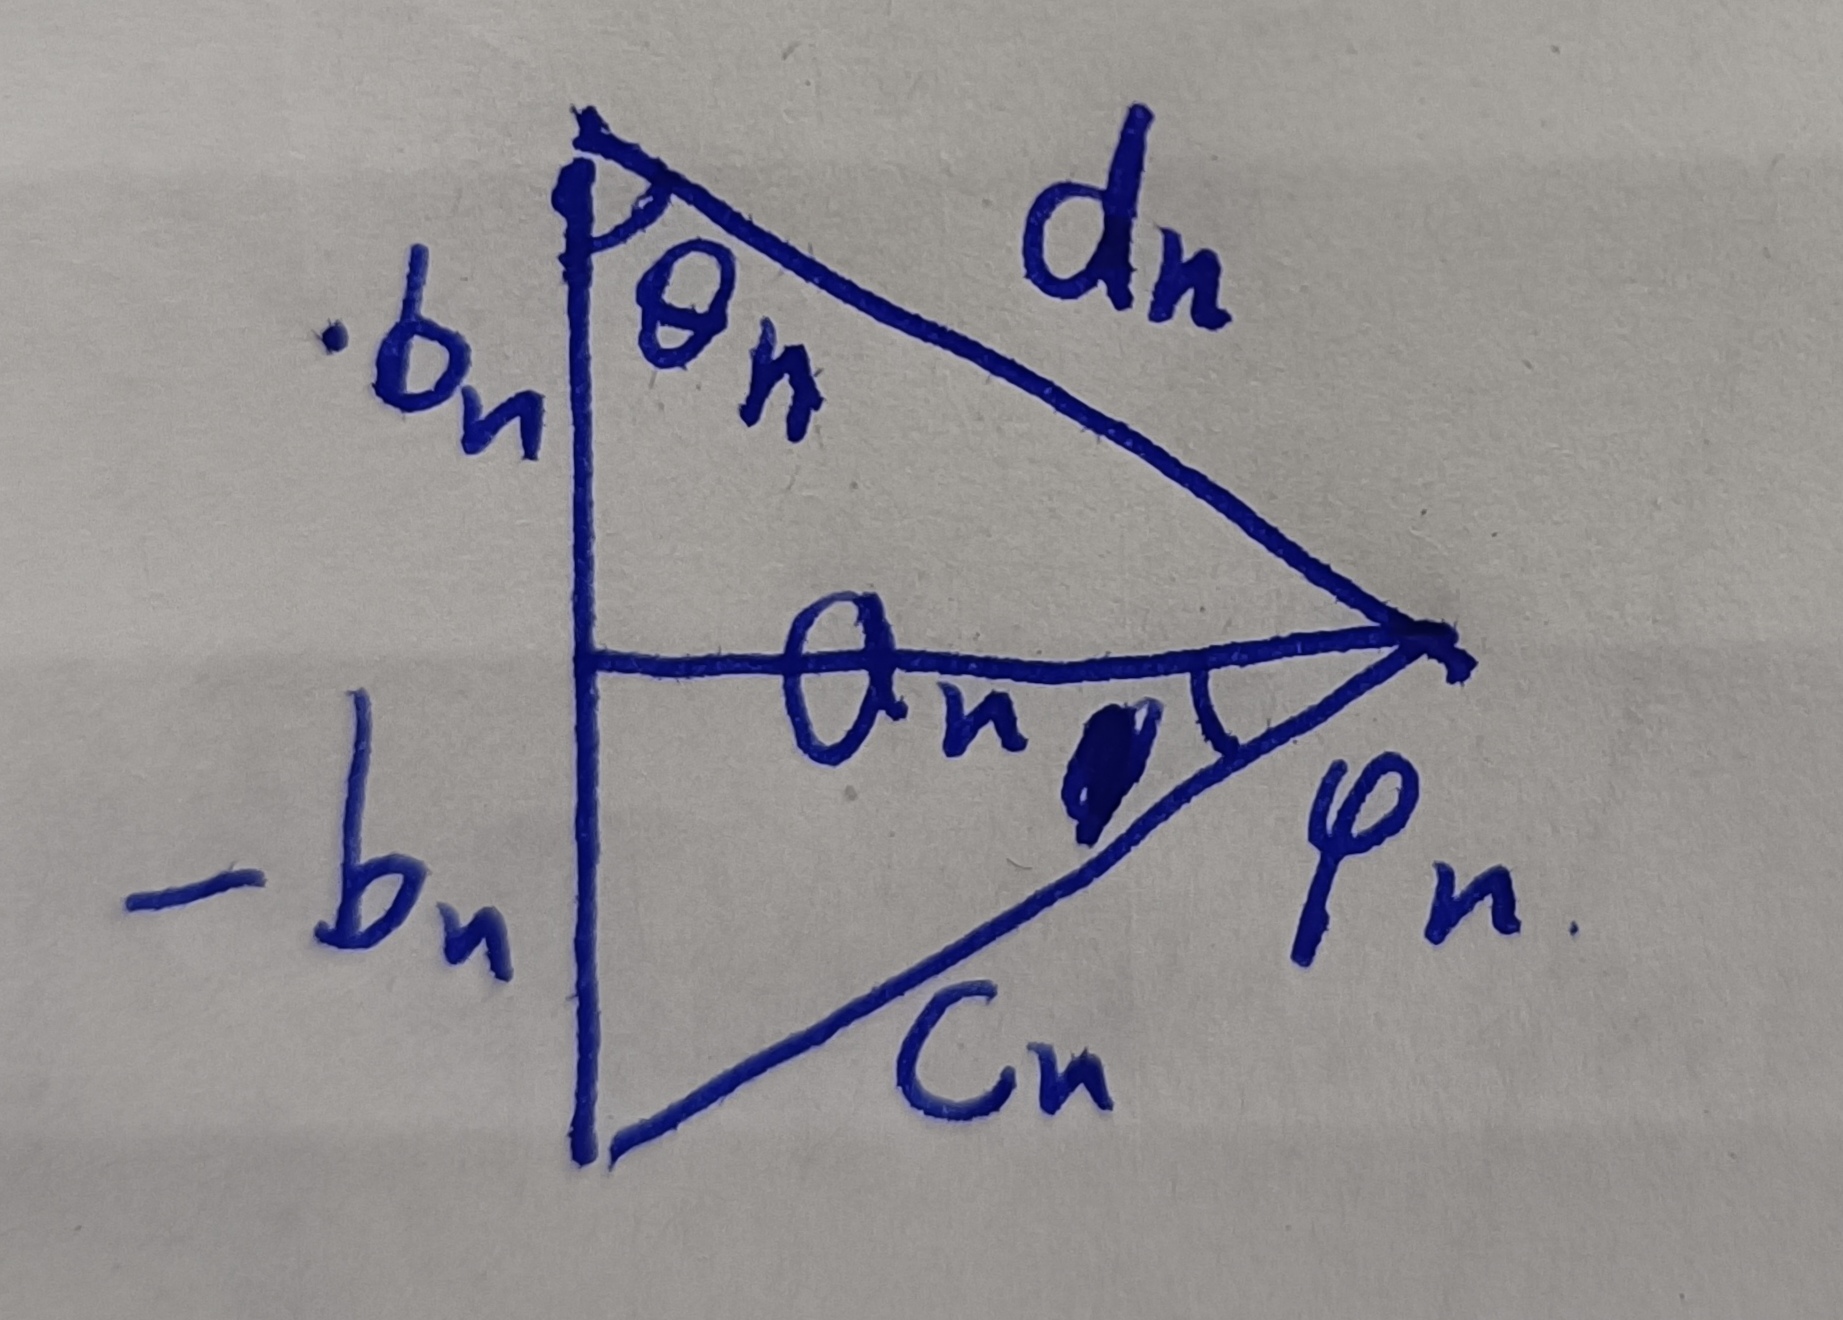 dn
bn
θn
an
-bn
φn.
cn